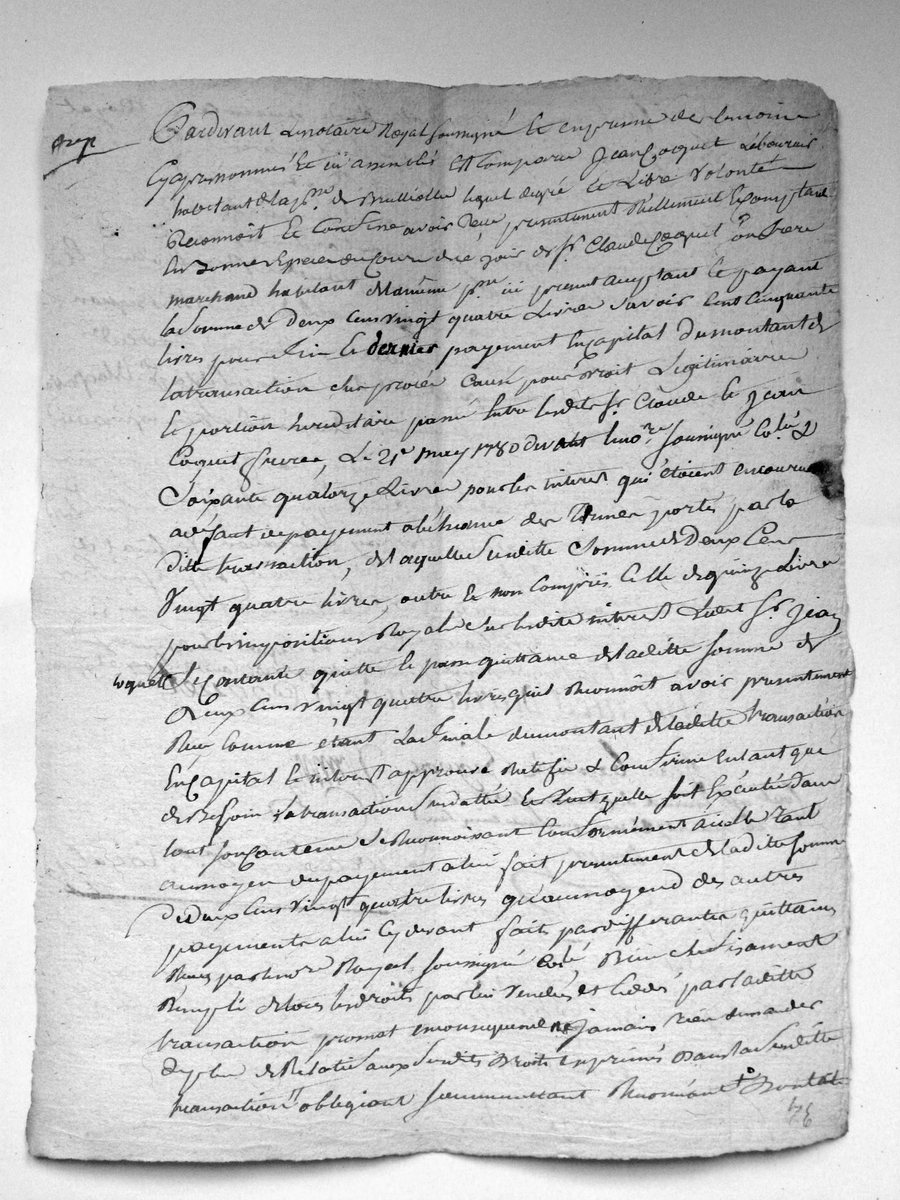 Pardevant le notaire Royal soussigné et en presence des temoins
cy apres nommés Et ici assemblés Est comparu Jean Coquet
habitant de la psse de lequel de gré et Libre Volonté
Reconnoit et Confesse avoir Reçu presentement Réellement Et comptant
En Bonne Espece du Cours de ce jour de Sr. Claude Coquet son frere
marchand habitant de la même psse ici present acceptant et payant
la somme de Deux cens vingt quatre Livres savoir cent cinquante
livres pour fin et dernier payement En capital du montant de
la transaction Cause pour droit Legitimaire
et portion hereditaire passée Entre lesdits Sr. Claude et Jean
Coquet freres, Le 21e may 1780 devant le nore. soussigné Colé &
Soixante quatorze Livres pour les interets qui étoient encourus
a defaut de payement a l'échéance des Termes portés par la
ditte transaction, de laquelle susditte somme de Deux Cens
Vingt quatre livres, outre et non compris Celle de quinze Livres
pour les impositions Royales sur lesdits interets Ledit Sr. Jean
Coquet Se Contante quitte et passe quittance de laditte somme de
Deux cens vingt quatre livres qu'il Reconnoit avoir presentement
Reçu Comme étant La finale du montant de laditte transaction
En capital et interest approuve Ratifie & Confirme En tant que
de Besoin la transaction susdattée et Veut quelle soit Exécutée dans
tout son Contenu se Reconnoissant Conformément a icelle tant
au moyen du payement a lui fait presentement de laditte somme
de Deux cens vingt quatre livres qu'au moyend des autres
payements a lui cy devant faits par differantes quittances
Reçues par le nore Royal soussigné Colé Bien
Rempli de tous les droits par lui vendus et cedés par laditte
transaction promet jamais Rien demander
de plus de Relatif aux susdits Droits Exprimés Dans la susditte
transaction obligeant soumettant